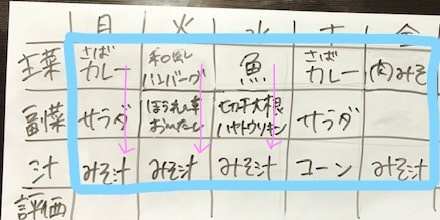 月 火 水 木 金
さば 和風 さば
主菜 カレー ハンバーグ 魚 カレー (肉)みそ
ほうれん草 切干大根
副菜 サラダ おひたし サラダ
汁 みそ汁 みそ汁 みそ汁 コーン みそ汁
評価